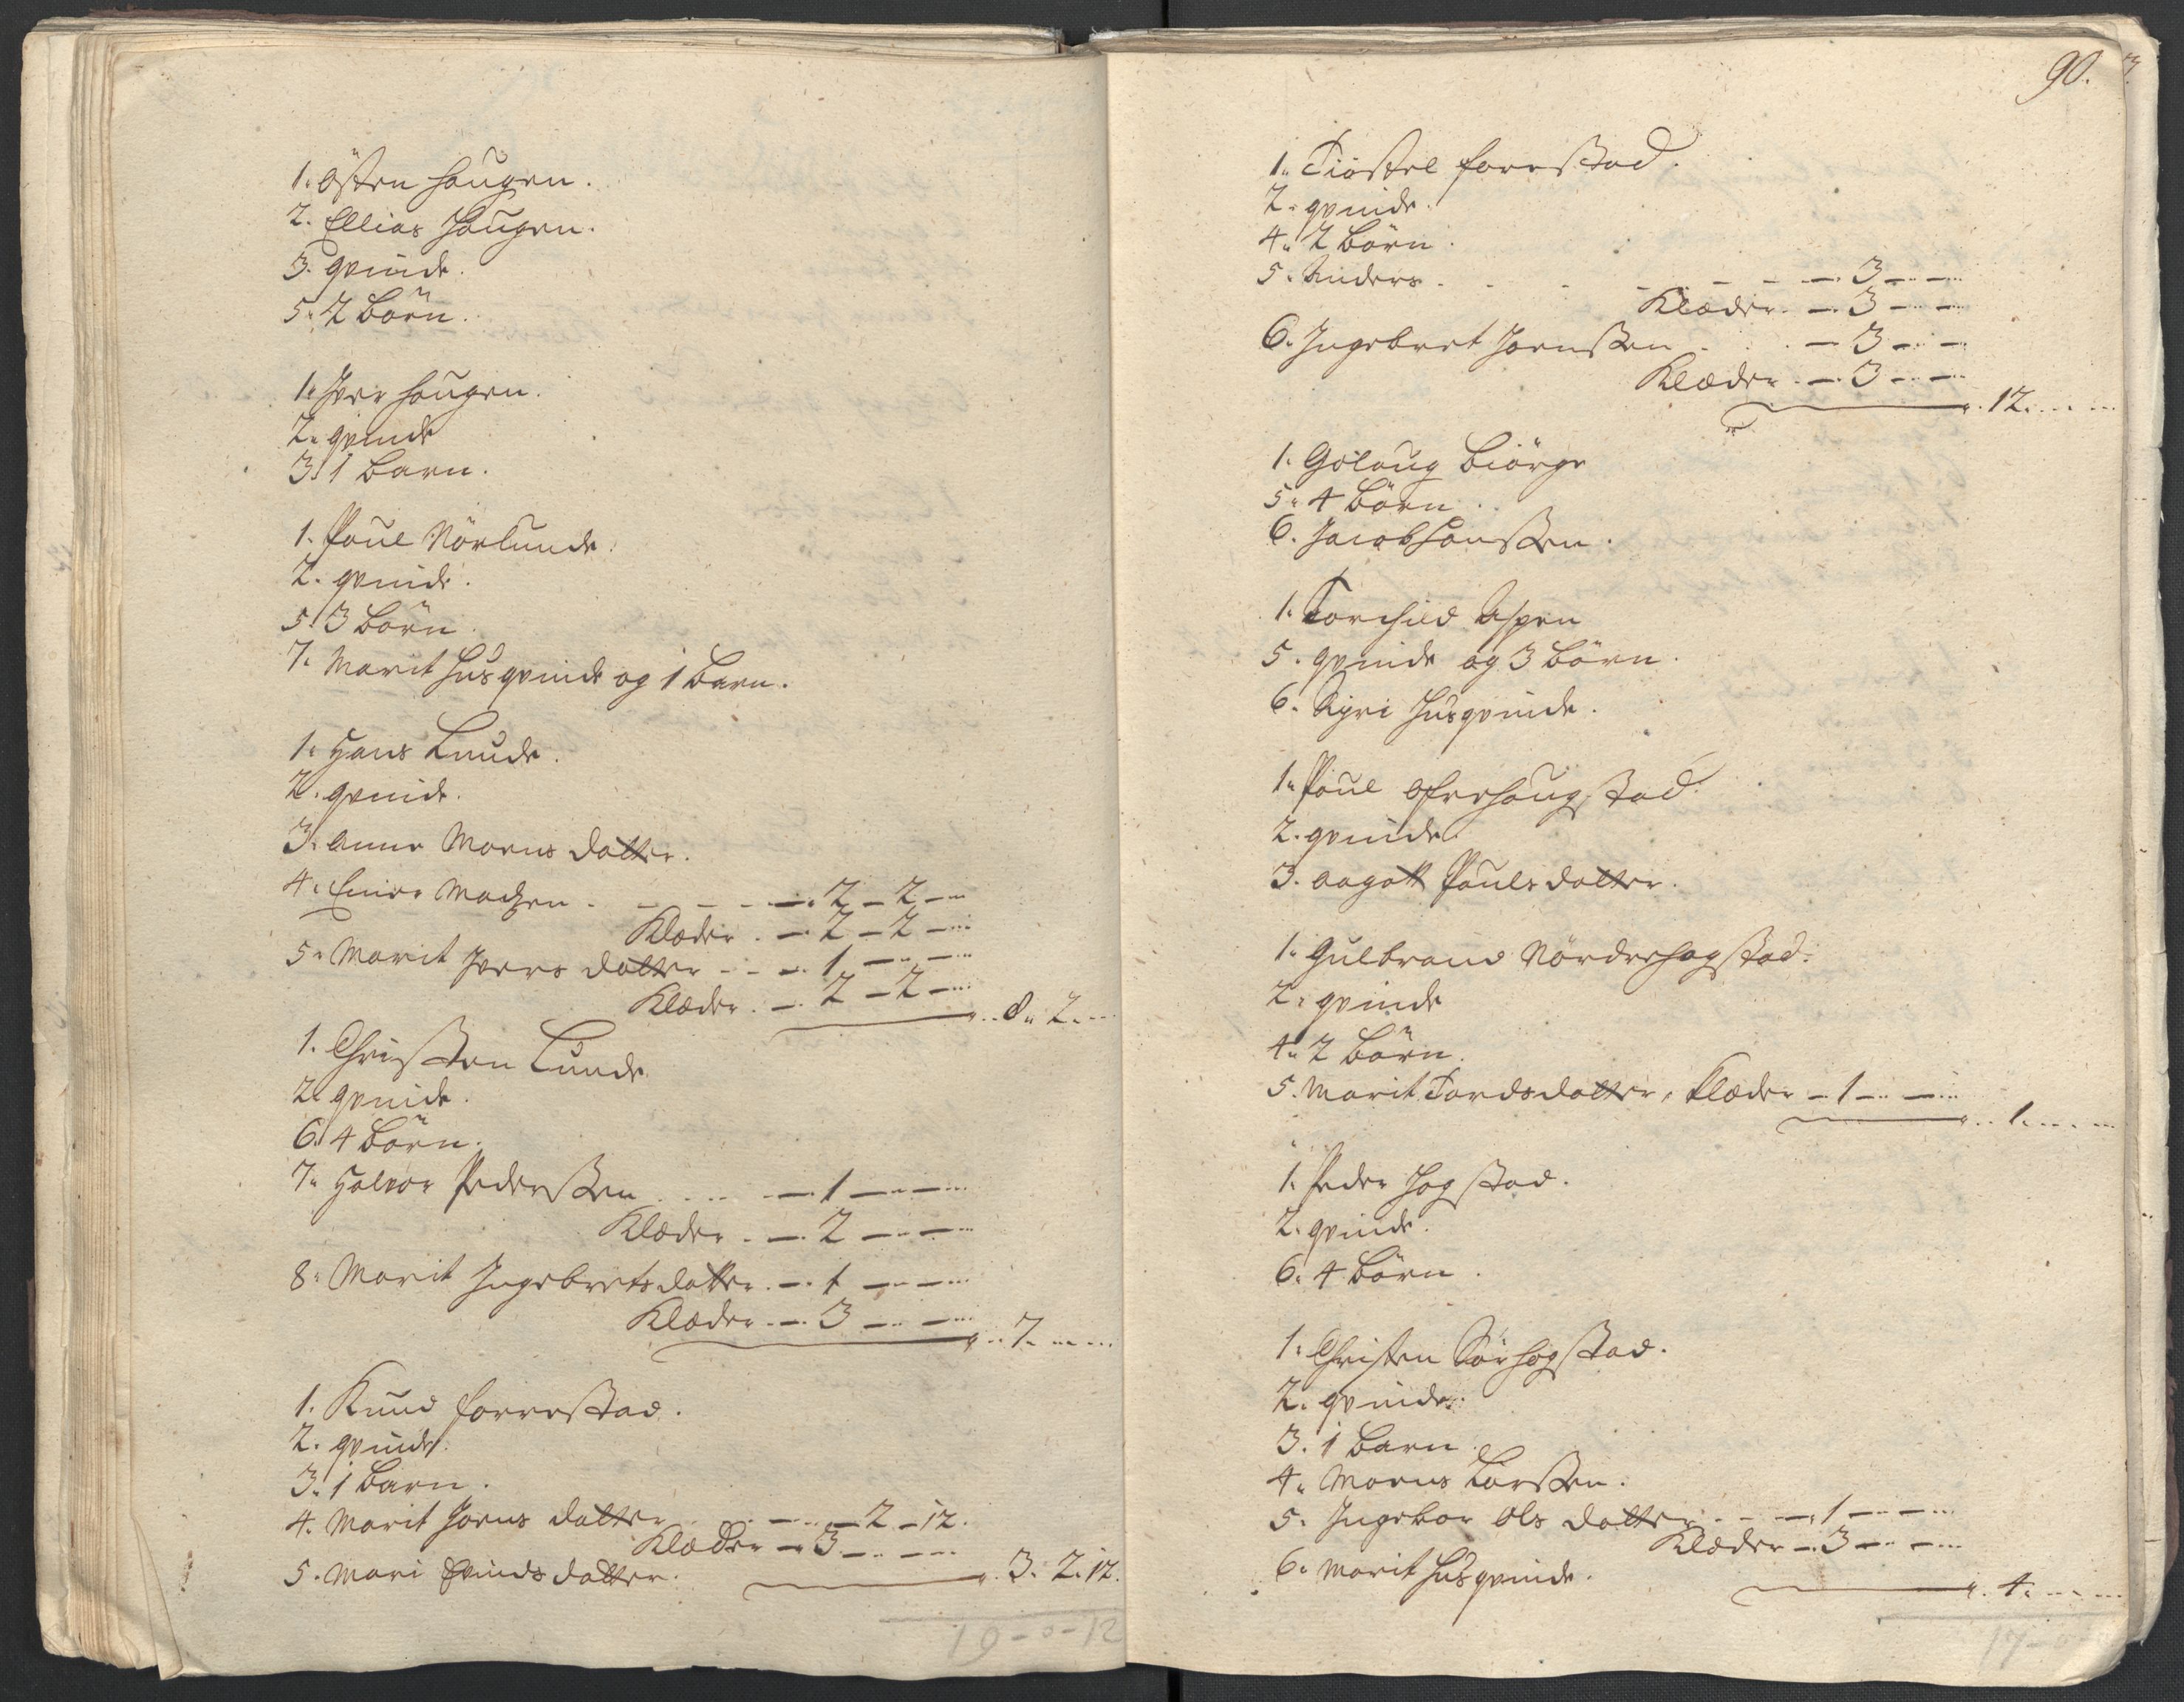 1. Østen Haugen.
2. Ellias Haugen.
3. qvinde.
5. 2 Börn.
1. Iver Haugen.
2. qvinde
3. 1 Barn.
1. Poul Nörlunde.
2. qvinde.
5. 3 Börn
7. Marit Husqvinde og 1 Barn.
1. Hans Lunde.
2. qvinde.
3. Anne Moens datter.
4. Madzen - - - 2 - 2 -
Klæder - 2 - 2 -
5. Marit Ivers datter - - 1 - -
Klæder - 2 - 2 -
8. 2.
1. Christen Lunde
2. qvinde.
6. 4 Börn.
7. Halvor Pederssen - 1 - -
Klæder - 2 - -
8. Marit Ingebretsdatter - 1 - -
Klæder - 3 - -
7.
1. Knud forrestad.
2. qvinde.
3. 1 Barn.
4. Marit Joens datter - 2 - 12.
Klæder - 3 - -
5. Mari Evindsdatter.
3. 2. 12.
19-0-12
90.
1. Tiöstel forrestad.
2. qvinde.
4. 2 Börn.
5. Anders - - - 3 - -
Klæder - 3 - -
6. Ingebret Joenssen - 3 - -
Klæder - 3 - -
12.
1. Golaug Biörge
5. 4 Börn.
6. Jacob Hanssen.
1. Torchild Aspen
5. qvinde og 3 Börn.
6. Sigri Husqvinde.
1. Poul Ofrehaugstad.
2. qvinde.
3. Aagott Poulsdatter.
1. Gulbrand Nördrehogstad.
2. qvinde
4. 2 Börn.
5. Marit Tordsdatter, Klæder - 1 - -
1.
1. Peder Hogstad.
2. qvinde.
6. 4 Börn.
1. Christen Sörhogstad.
2. qvinde.
3. 1 Barn.
4. Moens Larssen.
5. Ingebor Ols datter - - 1 - -
Klæder - 3 - -
6. Marit Husqvinde.
4.
17-0-